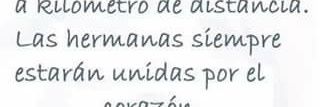 a kilómetro de distancia.
Las hermanas siempre
estarán unidas por el
corazón